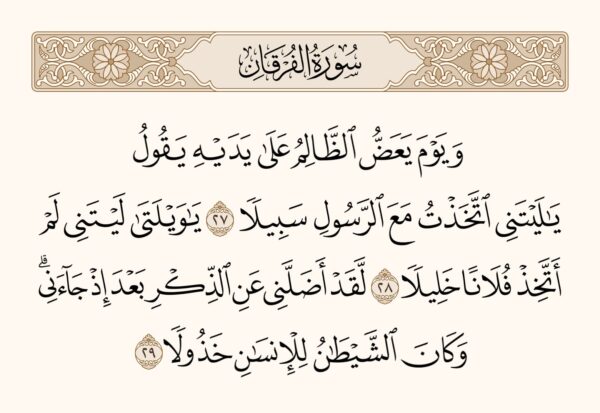 سُورَةُ الفُرْقَانِ
وَيَوْمَ يَعَضُّ ٱلظَّالِمُ عَلَىٰ يَدَيْهِ يَقُولُ
يَٰلَيْتَنِى ٱتَّخَذْتُ مَعَ ٱلرَّسُولِ سَبِيلًا ٢٧ يَٰوَيْلَتَىٰ لَيْتَنِى لَمْ
أَتَّخِذْ فُلَانًا خَلِيلًا ٢٨ لَّقَدْ أَضَلَّنِى عَنِ ٱلذِّكْرِ بَعْدَ إِذْ جَآءَنِى ۗ
وَكَانَ ٱلشَّيْطَٰنُ لِلْإِنسَٰنِ خَذُولًا ٢٩